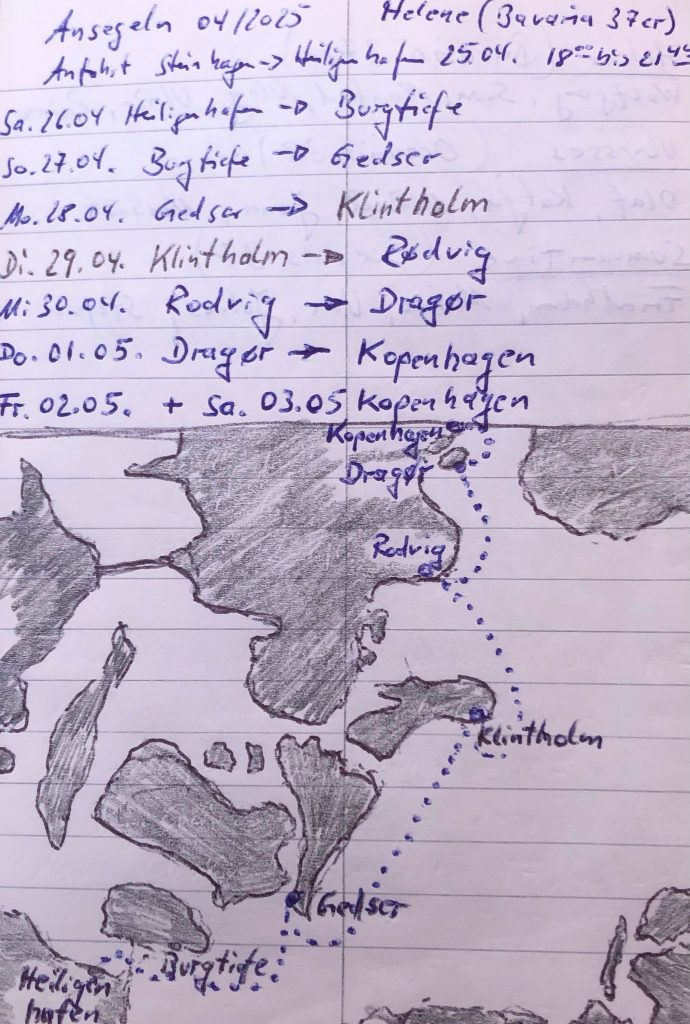 Ansegeln 04/2025 Helene (Bavaria 37er)
Anfahrt Steinhagen -> Heiligenhafen 25.04. 18°° bis 21⁴⁵
Sa. 26.04 Heiligenhafen -> Burgtiefe
So. 27.04. Burgtiefe -> Gedser
Mo. 28.04. Gedser -> Klintholm
Di. 29.04. Klintholm -> Rødvig
Mi 30.04. Rodvig -> Dragør
Do. 01.05. Dragør -> Kopenhagen
Fr. 02.05. + Sa. 03.05 Kopenhagen
Kopenhagen
Dragør
Rodvig
Klintholm
Gedser
Burgtiefe
Heiligen
hafen